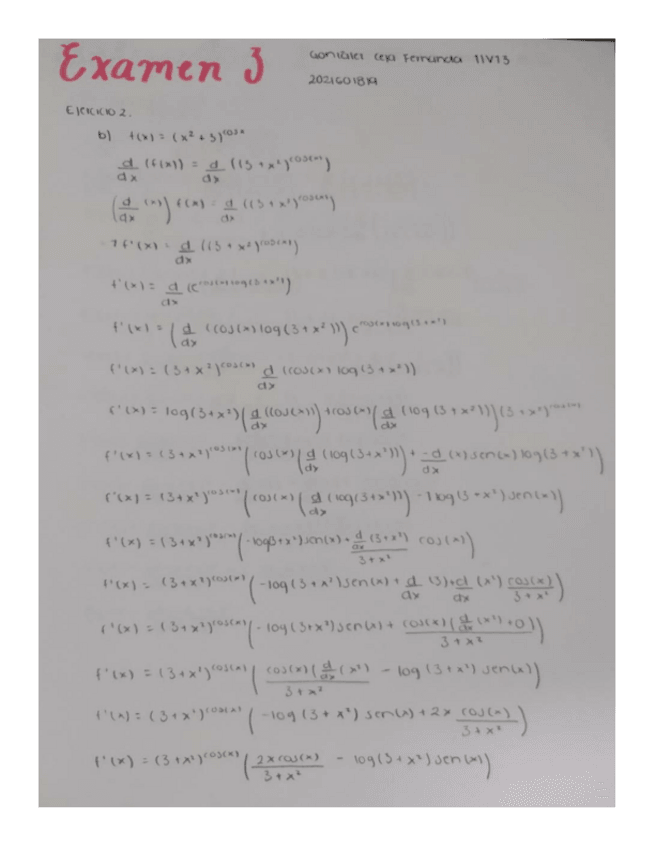 Examen 3
González Ceja Fernanda 1IV13
Ejercicio 2.
b) f(x) = (x² + 3)^cosx
d/dx (f(x)) = d/dx ((3 + x²)^cos(x))
(d/dx (x)) f(x) = d/dx ((3 + x²)^cos(x))
1 f'(x) = d/dx ((3 + x²)^cos(x))
f'(x) = d/dx (e^cos(x)log(3+x²))
f'(x) = (d/dx (cos(x) log(3 + x²))) e^cos(x)log(3+x²)
f'(x) = (3+x²)^cos(x) d/dx (cos(x) log(3 + x²))
f'(x) = log(3+x²)(d/dx ((cos(x))) + cos(x)(d/dx (log(3 + x²)))(3 + x²)^cos(x)
f'(x) = (3+x²)^cos(x) (cos(x)(d/dx (log(3+x²))) + -d/dx (x) sen(x) log(3 + x²))
f'(x) = (3+x²)^cos(x) (cos(x)(d/dx (log(3+x²))) - 1 log(3 + x²) sen(x))
f'(x) = (3+x²)^cos(x) (-log3+x²)sen(x) + d/dx (3+x²)/3+x² cos(x))
f'(x) = (3+x²)^cos(x) (-log(3 + x²)sen(x) + d/dx (3) + d/dx (x²) cos(x)/3+x²)
f'(x) = (3+x²)^cos(x) (-log(3+x²)sen(x) + cos(x)(d/dx (x²) + 0)/3+x²))
f'(x) = (3+x²)^cos(x) (cos(x)(d/dx (x²)/3+x² - log(3+x²) sen(x))
f'(x) = (3+x²)^cos(x) (-log(3 + x²) sen(x) + 2x cos(x)/3+x²)
f'(x) = (3+x²)^cos(x) (2x cos(x)/3+x² - log(3+x²) sen(x))